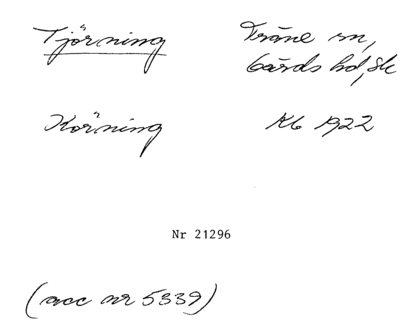 Tjörning
Träne sn,
Gärds hd, Sk
Körning
Kb 1922
Nr 21296
(acc nr 5339)